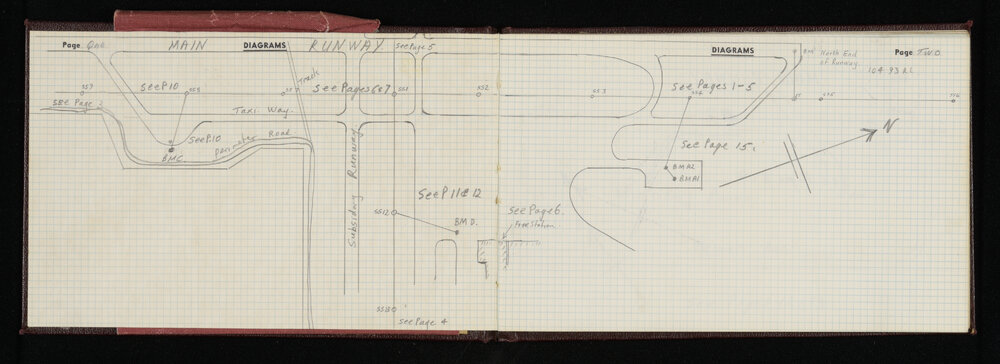 Page One
MAIN
DIAGRAMS
RUNWAY
See Page 5
Track
See P.10
See Pages 6&7
SS7
SS8
SS1
SS2
See Page 2
Taxi-Way.
See P.10
BMC
Perimeter Road.
Subsidary Runway
See P 11 & 12
SS12
BM D.
SS13
See Page 4
DIAGRAMS
Page T.W.O.
BM
North End
of Runway
104.93 RL
See Pages 1-5
SS3
SS4
SS5
SS6
See Page 15.
N
BMA2
BMA1
See Page 6.
Fire Station